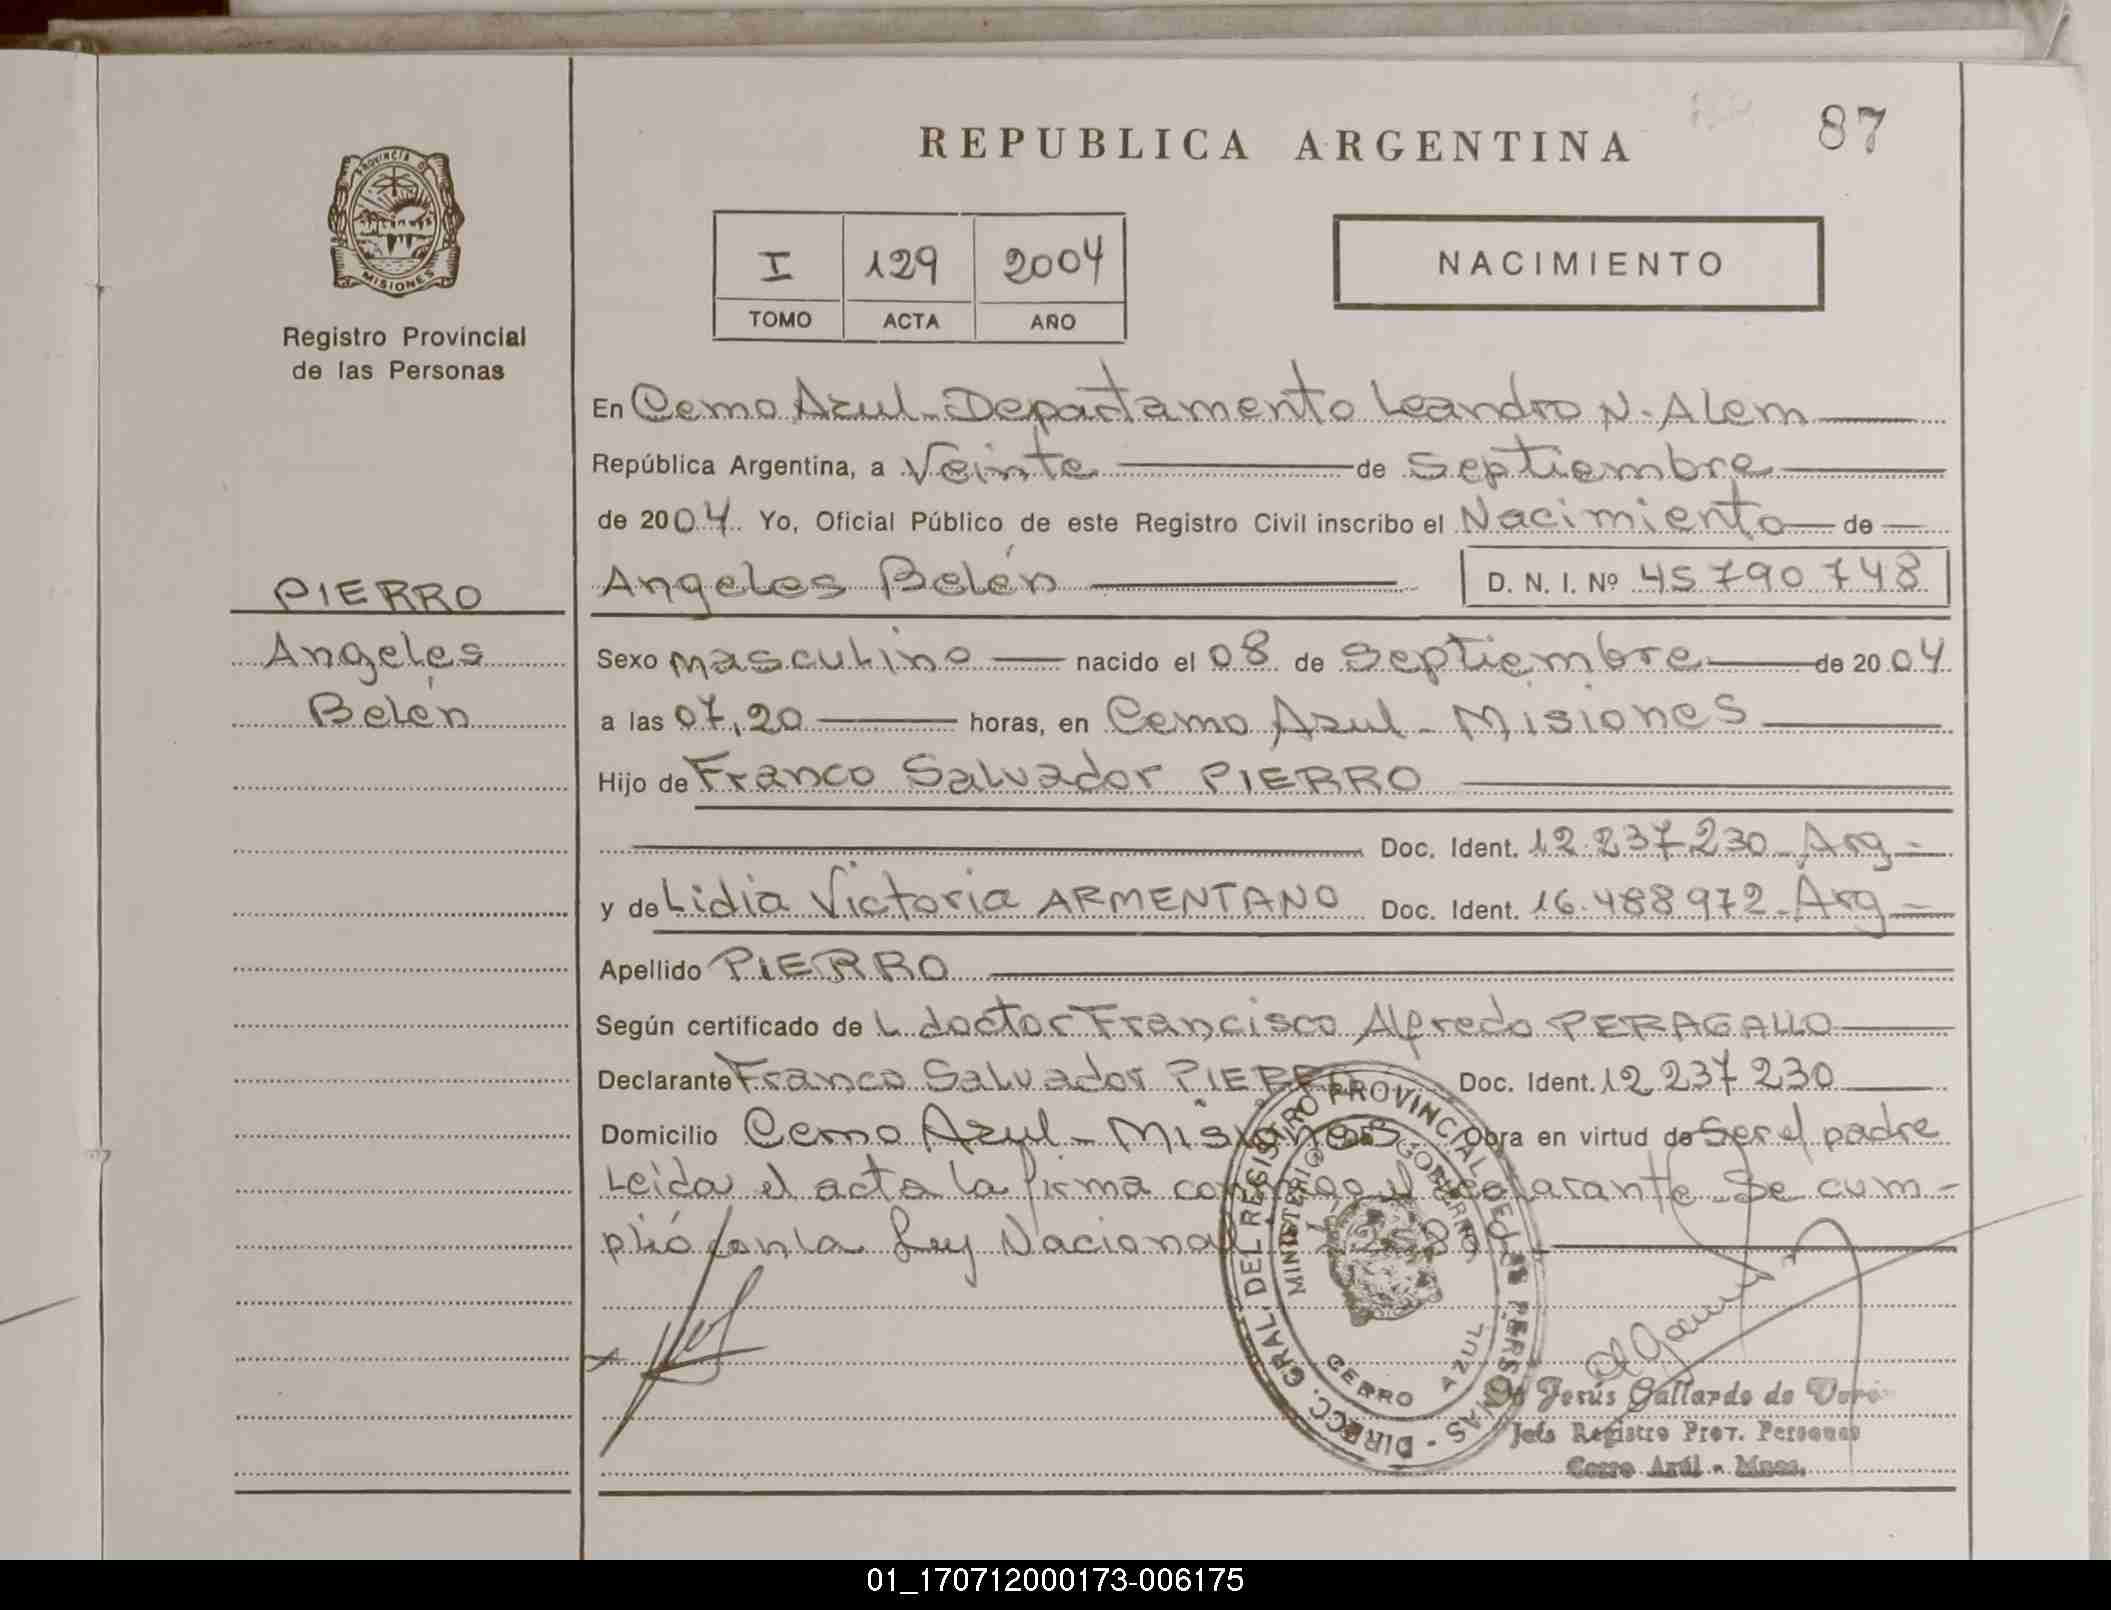 REPUBLICA ARGENTINA
87
PROVINCIA DE
MISIONES
Registro Provincial
de las Personas
I 129 2004
TOMO ACTA AÑO
NACIMIENTO
En Cerro Azul - Departamento Leandro N. Alem
República Argentina, a Veinte de Septiembre
de 2004. Yo, Oficial Público de este Registro Civil inscribo el Nacimiento de
Angeles Belén D. N. I. Nº 45790748
PIERRO
Angeles
Belén
Sexo masculino nacido el 08 de Septiembre de 2004
a las 07,20 horas, en Cerro Azul - Misiones
Hijo de Franco Salvador PIERRO
Doc. Ident. 12.237.230 - Arg -
y de Lidia Victoria ARMENTANO Doc. Ident. 16.488972 - Arg -
Apellido PIERRO
Según certificado de L doctor Francisco Alfredo PERAGALLO
Declarante Franco Salvador PIERRO Doc. Ident. 12 237 230
Domicilio Cerro Azul - Misiones - Obra en virtud de ser el padre
Leída el acta la firma conmigo el declarante - Se cum-
plió con la Ley Nacional
DIRECC. GRAL. DEL REGISTRO PROVINCIAL DE LAS PERSONAS -
MINISTERIO DE GOBIERNO
CERRO AZUL
Jesús Gallardo de
Jefe Registro Prov. Personas
Cerro Azúl - Mnes.
01_170712000173-006175